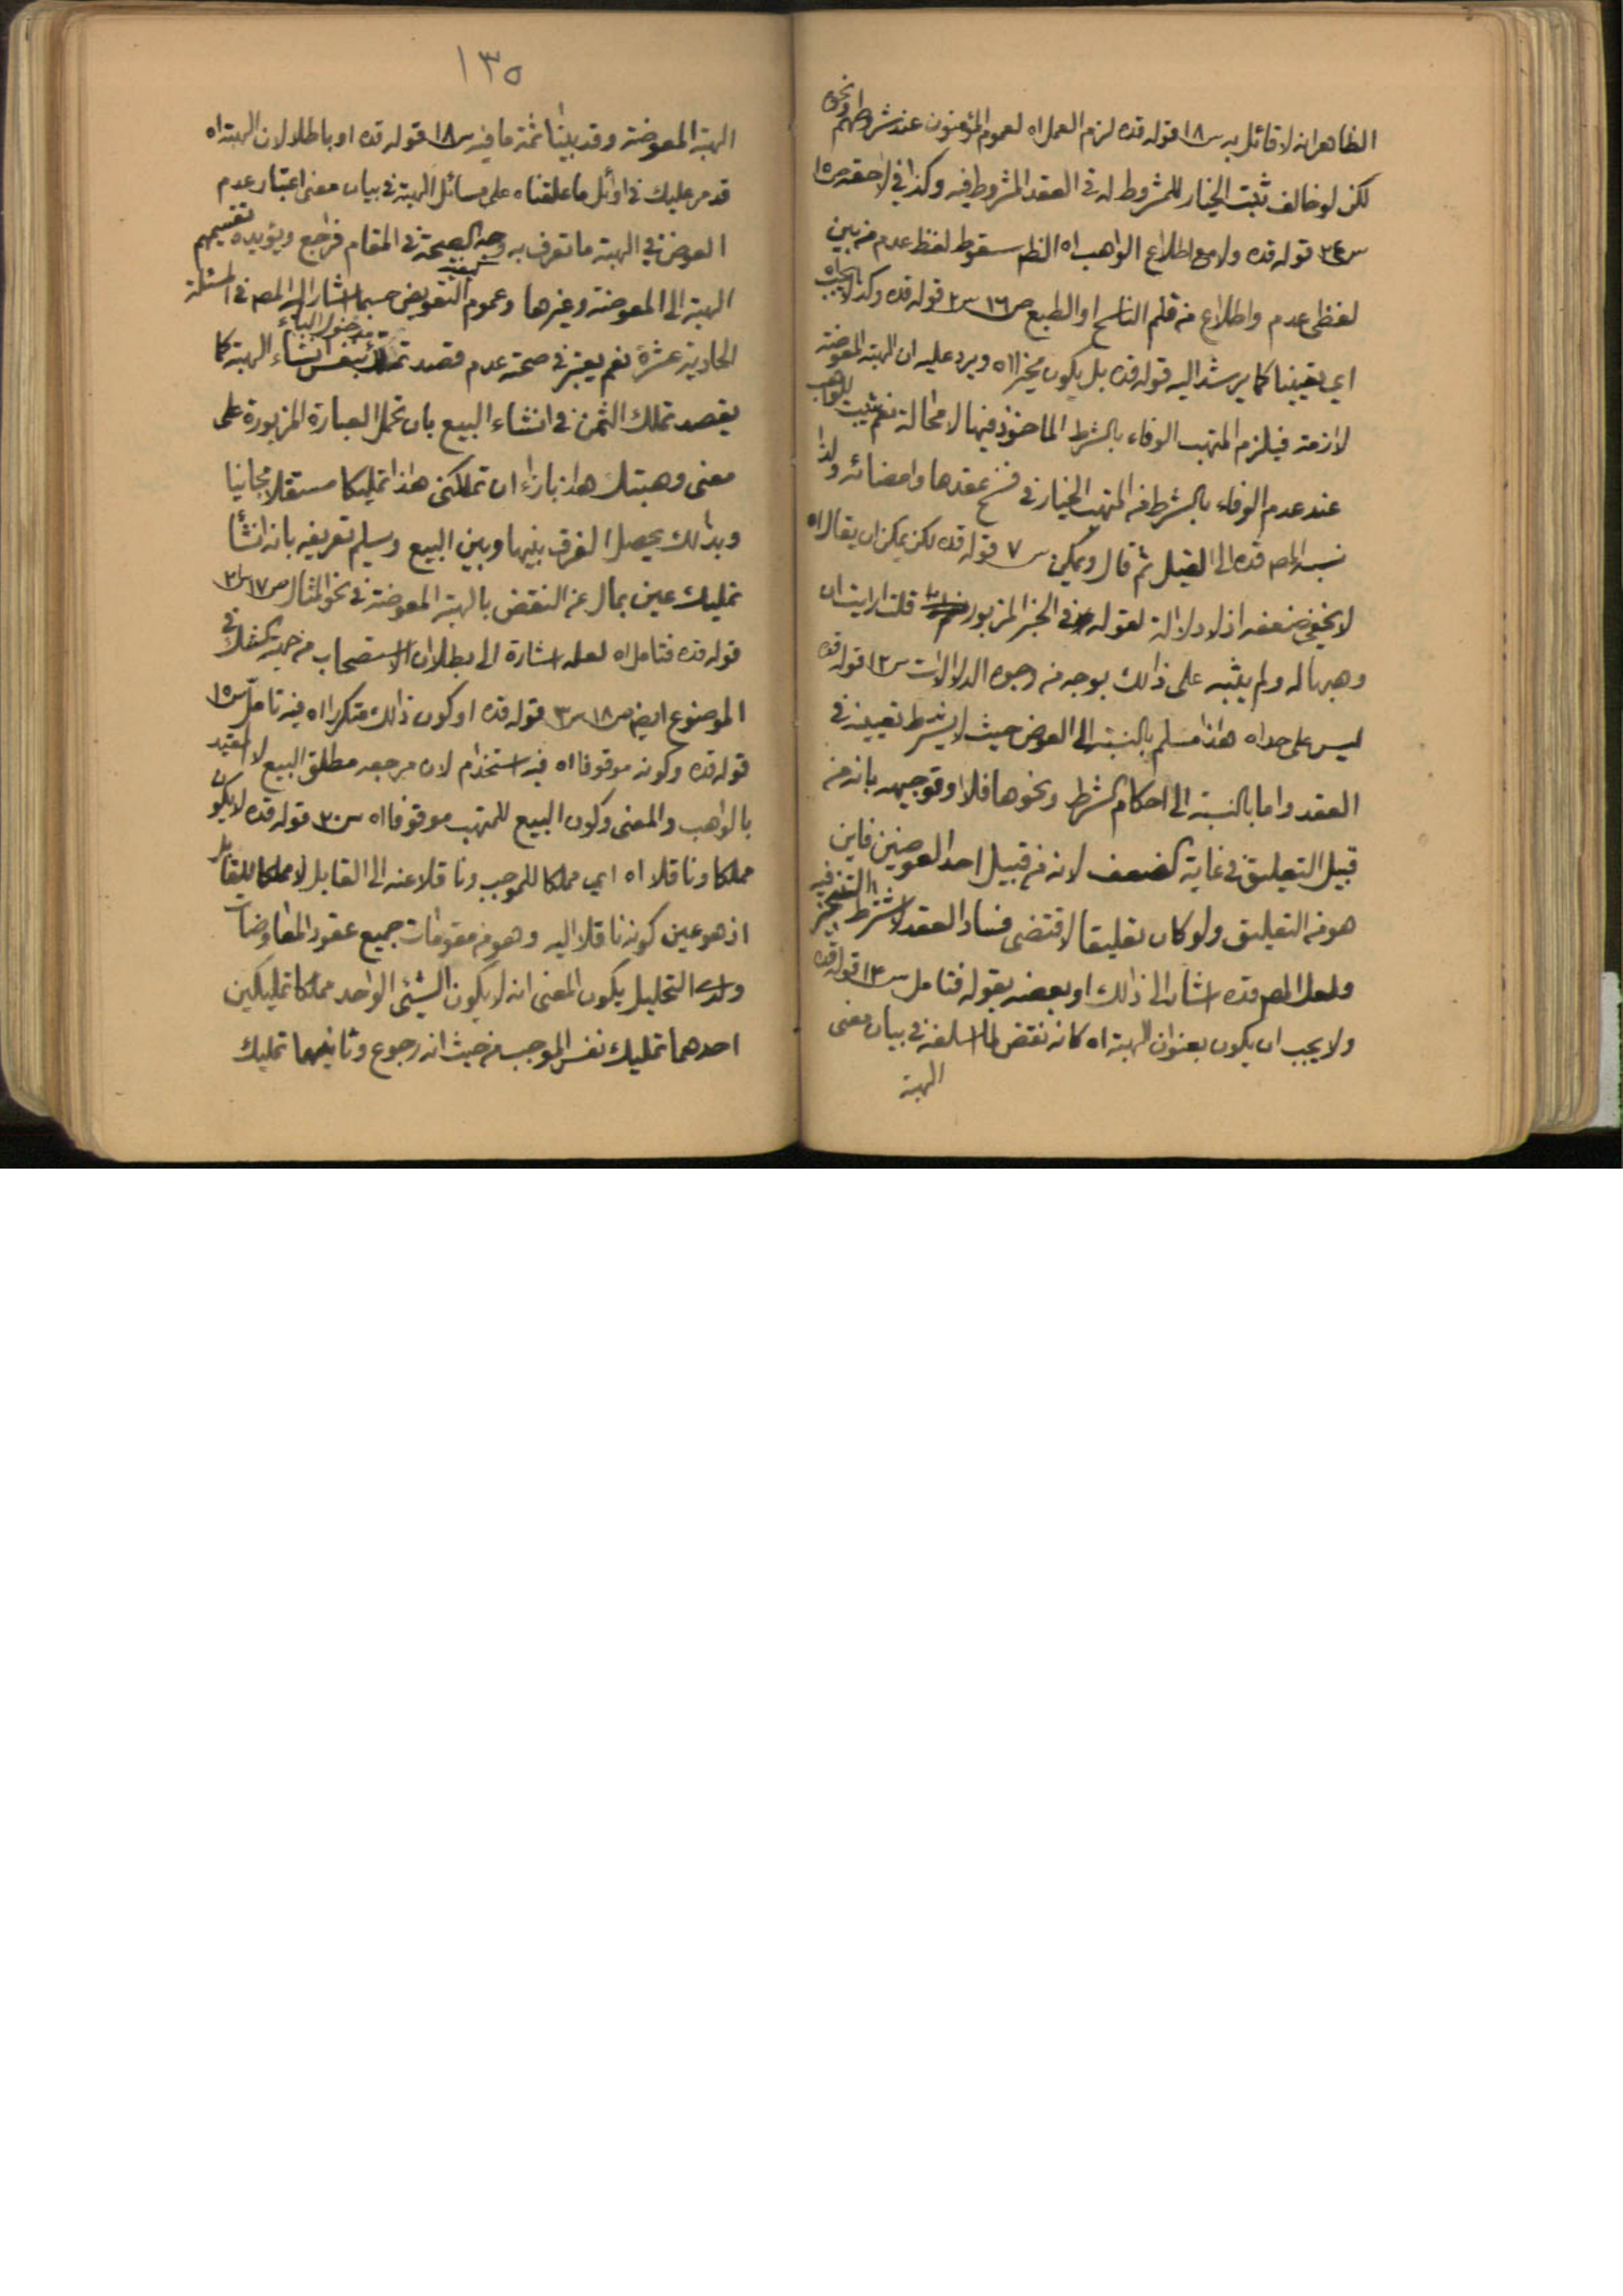 الظاهر انه لا قائل به س١٨ قوله قده لزم العمل اه لعموم المؤمنون عند شروطهم ونحوه
لكن لو خالف ثبت الخيار للمشروط له في العقد المشروط فيه وكذا في لاحقه ص١٥
س٢٤ قوله قده ولا مع اطلاع الواهب اه الظم سقوط لفظ عدم من بين
لفظي عدم واطلاع من قلم الناسخ او الطبع ص١٦ س٢ قوله قده وكذا لا يجب اه
اي يقينا كما يرشد اليه قوله قده بل يكون مخيرا اه ويرد عليه ان الهبة المعوضة
لازمة فيلزم المتهب الوفاء بالشرط الماخوذ فيها لا محالة نعم يثبت للواهب
عند عدم الوفاء بالشرط من المتهب الخيار في فسخ عقدها وامضائه ولذا
نسبه المصم قده الى القيل ثم قال ويمكن س٧ قوله قده لكن يمكن ان يقال اه
لا يخفى ضعفه اذ لا دلالة لقوله في الخبر المزبور قلت ارايت ان
وهبها له ولم يثبه على ذالك بوجه من وجوه الدلالات س١٢ قوله قده
ليس على حد اه هذا مسلم بالنسبة الى العوض حيث لا يشترط تعيينه في
العقد واما بالنسبة الى احكام الشرط ونحوها فلا وتوجيهه بانه من
قبيل التعليق في غاية الضعف لانه من قبيل احد العوضين فاين
هو من التعليق ولو كان تعليقا لاقتضى فساد العقد لاشتراط التنجيز فيه
ولعل المصم قده اشار الى ذالك او بعضه بقوله فتامل س١٤ قوله قده
ولا يجب ان يكون بعنوان الهبة اه كانه نقض لما اسلفه في بيان معنى
الهبة
١٣٥
الهبة المعوضة وقد بينا ثمة ما فيه س١٨ قوله قده او باطلا لان الهبة اه
قد مر عليك في اوائل ما علقناه على مسائل الهبة في بيان معنى اعتبار عدم
العوض في الهبة ما تعرف به وجه الصحة في المقام فراجع ويؤيده تقسيمهم
الهبة الى المعوضة وغيرها وعموم التعويض حسبما اشار اليه المصم في المسئلة
الحادية عشرة نعم يعتبر في صحة عدم قصد تملك مدخول الباء بنفس انشاء الهبة كما
يقصد تملك الثمن في انشاء البيع بان تحمل العبارة المزبورة على
معنى وهبتك هذا بازاء ان تملكني هذا تمليكا مستقلا مجانيا
وبذالك يحصل الفرق بينها وبين البيع وسلم تعريفه بانه انشأ
تمليك عين بمال عن النقض بالهبة المعوضة في نحو المثال ص١٧ س٢
قوله قده فتامل اه لعله اشارة الى بطلان الاستصحاب من جهة الشك في
الموضوع ايضم ص١٨ س٣ قوله قده او كون ذالك متكررا اه فيه تامل س١٥
قوله قده وكونه موقوفا اه فيه استخدام لان مرجعه مطلق البيع لا المقيد
بالواهب والمعنى وكون البيع للمتهب موقوفا اه س٢٠ قوله قده لا يكون
مملكا وناقلا اه اي مملكا للموجب وناقلا عنه الى القابل لا مملكا للقابل
اذ هو عين كونه ناقلا اليه وهو من مقومات جميع عقود المعاوضات
ولدى التحليل يكون المعنى انه لا يكون الشيئ الواحد مملكا تمليكين
احدهما تمليك نفس الموجب من حيث انه رجوع وثانيهما تمليك